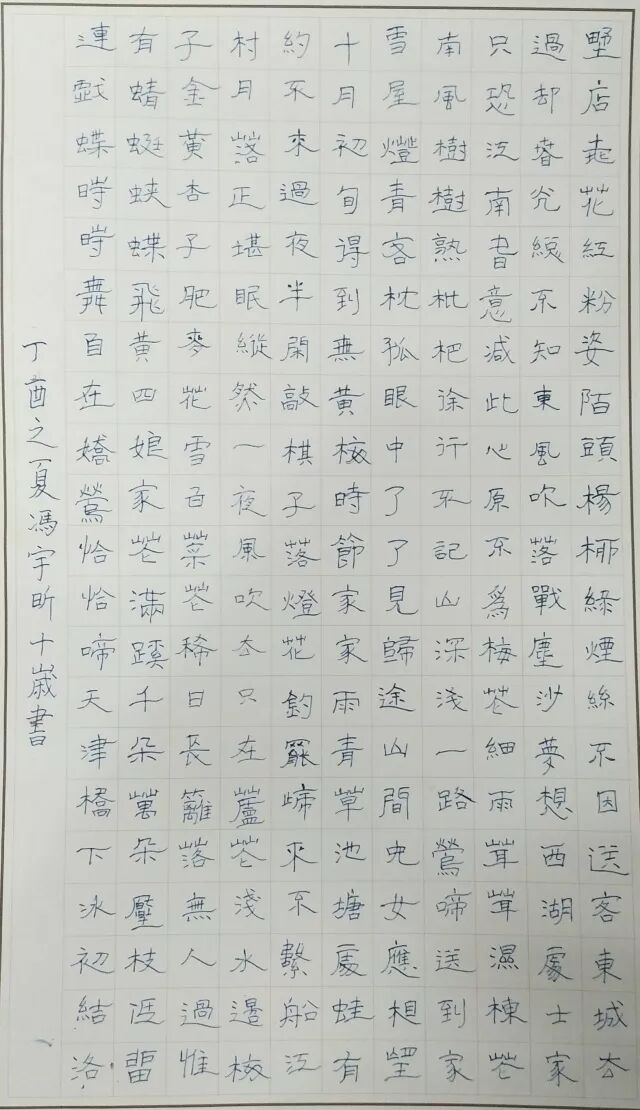 墅店桃花紅粉姿陌頭楊柳綠煙絲不因送客東城去
過却春光總不知東風吹落戰塵沙夢想西湖處士家
只恐江南春意減此心原不為梅花細雨茸茸濕楝花
南風樹樹熟枇杷徐行不記山深淺一路鶯啼送到家
雪屋燈青客枕孤眼中了了見歸途山間兒女應相望
十月初旬得到無黃梅時節家家雨青草池塘處蛙有
約不來過夜半閑敲棋子落燈花釣罷歸來不繫船江
村月落正堪眠縱然一夜風吹去只在蘆花淺水邊梅
子金黃杏子肥麥花雪白菜花稀日長籬落無人過惟
有蜻蜓蛺蝶飛黃四娘家花滿蹊千朵萬朵壓枝低留
連戲蝶時時舞自在嬌鶯恰恰啼天津橋下冰初結洛
丁酉之夏馮宇昕十歲書